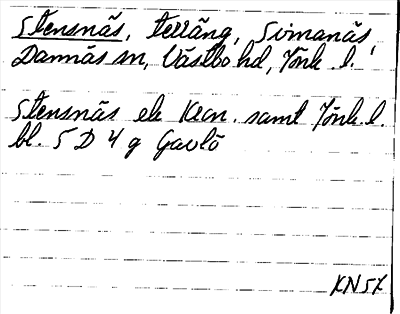 Stensnäs, terräng, Simanäs,
Dannäs sn, Västbo hd, Jönk. l.
Stensnäs ek Kron. samt Jönk. l.
bl. 5 D 4 g Gavlö
KN57